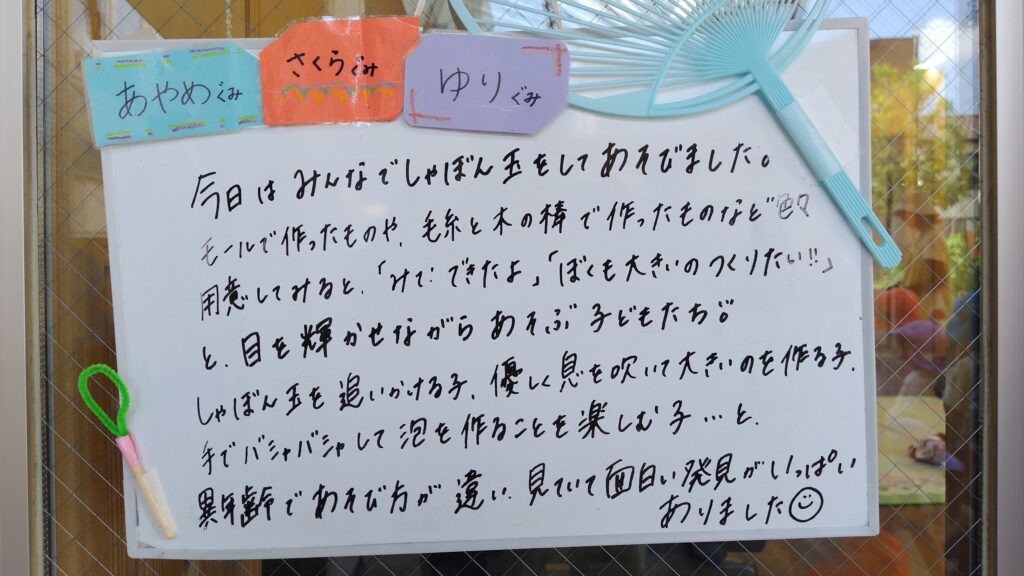 あやめぐみ
さくらぐみ
ゆりぐみ
今日はみんなでしゃぼん玉をしてあそびました。
モールで作ったものや、毛糸と木の棒で作ったものなど色々
用意してみると、「みて!できたよ」「ぼくも大きいのつくりたい!!」
と、目を輝かせながらあそぶ子どもたち。
しゃぼん玉を追いかける子、優しく息を吹いて大きいのを作る子、
手でバシャバシャして泡を作ることを楽しむ子…と、
異年齢であそび方が違い、見ていて面白い発見がいっぱい
ありました